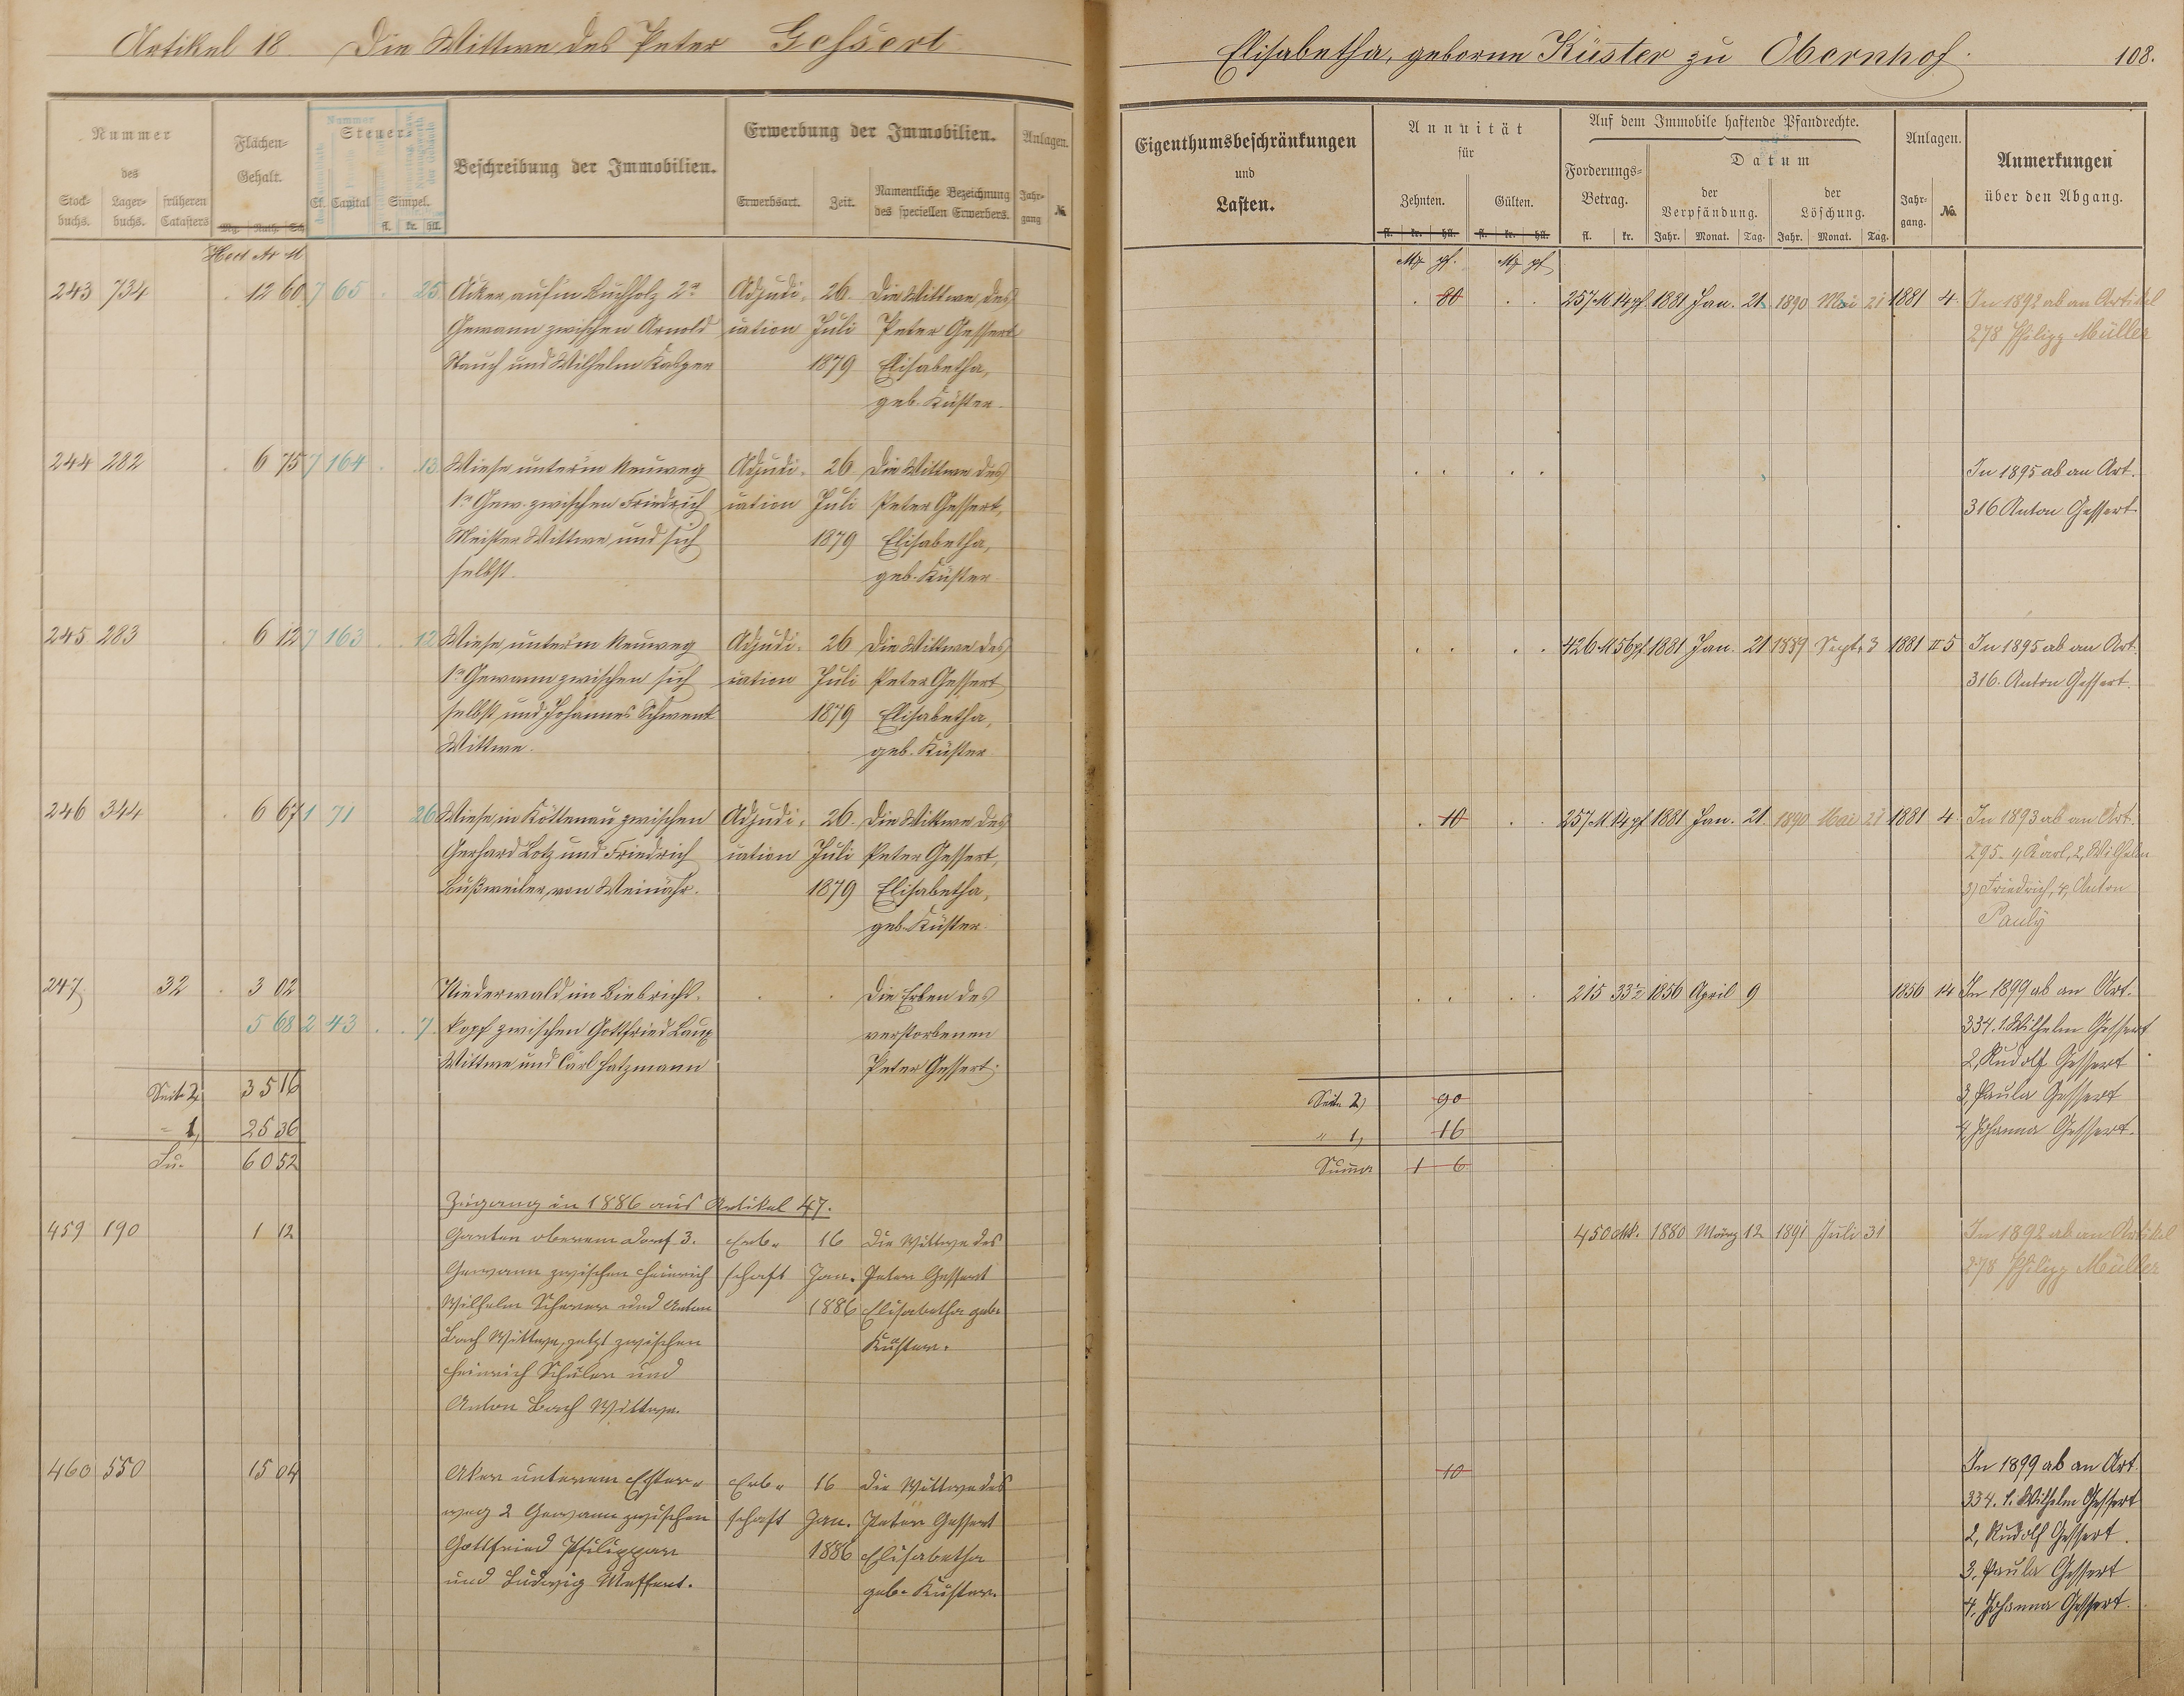 Artikel 18 Die Wittwe des Peter Gessert
Elisabetha, geborne Küster zu Obernhof.
108.
Nummer
des
Stock-
buchs.
Lager-
buchs.
früheren
Catasters
Flächen-
Gehalt.
Mrg. Ruth. Sch.
Steuer-
Nummer
Cl. Capital Simpel.
fl. kr. hll.
Beschreibung der Immobilien.
Erwerbung der Immobilien.
Erwerbsart. Zeit.
Namentliche Bezeichnung
des speciellen Erwerbers.
Anlagen.
Jahr-
gang
№
Hect Ar M
243 734 . 12 60 7 65 . 25 Acker auf'm Buchholz 2r Adjudi- 26. Die Wittwe des
Gewann zwischen Arnold cation Juli Peter Gessert
Stauch und Wilhelm Kasper 1879 Elisabetha,
geb. Küster.
244 282 . 6 75 7 164 . 13 Wiese unter'm Neuweg Adjudi- 26 Die Wittwe des
1r Gew. zwischen Friedrich cation Juli Peter Gessert,
Meister Wittwe und sich 1879 Elisabetha,
selbst. geb. Küster.
245 283 . 6 12 7 163 . 12 Wiese unter'm Neuweg Adjudi- 26 Die Wittwe des
1r Gewann zwischen sich cation Juli Peter Gessert,
selbst und Johannes Schwenk 1879 Elisabetha,
Wittwe. geb. Küster
246 344 . 6 67 1 71 26 Wiese in Köttenau zwischen Adjudi- 26. Die Wittwe des
Gerhard Lotz und Friedrich cation Juli Peter Gessert,
Bußweiler von Weinähr. 1879 Elisabetha,
geb. Küster.
247 32 . 3 02 Niederwald im Biebricht- . . Die Erben des
5 68 2 43 . . 7 kopf zwischen Gottfried Laux verstorbenen
Wittwe und Carl Hatzmann Peter Gessert.
Seite 2, 35 16
" 1, 25 36
Su. 60 52
Zugang in 1886 aus Artikel 47.
459 190 1 12 Garten oberem Dorf 3. Erb- 16 Die Wittwe des
Gewann zwischen Heinrich schaft Jan. Peter Gessert
Wilhelm Scherer und Anton 1886 Elisabetha geb.
Bach Wittwe, jetzt zwischen Küster.
Heinrich Schüler und
Anton Bach Wittwe.
460 550 15 04 Aker unterem Ester- Erb- 16 Die Wittwe des
weg 2 Gewann zwischen schaft Jan. Peter Gessert
Gottfried Philippar 1886 Elisabetha
und Ludwig Meffert. geb. Küster.
Eigenthumsbeschränkungen
und
Lasten.
Annuität
für
Zehnten. Gülten.
fl. kr. hll. fl. kr. hll.
Auf dem Immobile haftende Pfandrechte.
Forderungs-
Betrag.
fl. kr.
Datum
der
Verpfändung.
der
Löschung.
Jahr. Monat. Tag. Jahr. Monat. Tag.
Anlagen.
Jahr-
gang.
No.
Anmerkungen
über den Abgang.
M pf. M pf
. 80 . . 257 M 14 pf 1881 Jan. 21 1890 Mai 21 1881 4 In 1892 ab an Artikel
278 Philipp Müller
. . . . In 1895 ab an Art.
316 Anton Gessert.
. . . . 426 M 56 pf 1881 Jan. 21 1889 Sept. 3 1881 II 5 In 1895 ab an Art.
316. Anton Gessert.
. 10 . . 257 M 14 pf 1881 Jan. 21. 1890 Mai 21 1881 4. In 1893 ab an Art.
295. 1, Karl, 2, Wilhelm
3) Friedrich, 4, Anton
Pauly
. . . . 215 33½ 1856 April 9 1856 14 In 1899 ab an Art.
334. 1. Wilhelm Gessert
2, Rudolf Gessert
3, Paula Gessert
4, Johanna Gessert.
Seite 2) 90
" 1, 16
Summa 1 6
450 Mk. 1880 März 12 1891 Juli 31 In 1892 ab an Artikel
278 Philipp Müller
10 In 1899 ab an Art.
334. 1. Wilhelm Gessert
2, Rudolf Gessert.
3, Paula Gessert
4, Johanna Gessert.